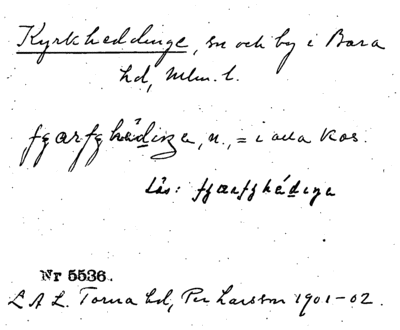 Kyrkheddinge, sn och by i Bara
hd, Mlm. l.
fçarfghädinge, n., = i alla kas.
Läs: fçarfghädinge
Nr 5536.
L A L. Torna hd, Per Larsson 1901–02.